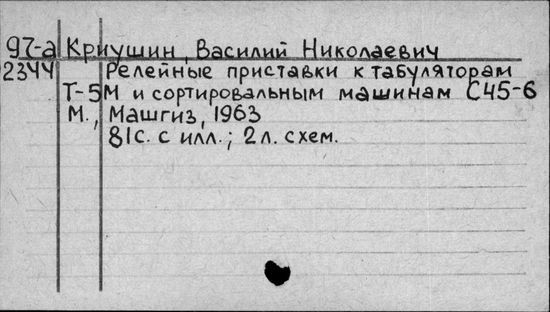 97-а Криушин, Василий Николаевич
02344 Релейные приставки к табуляторам
Т-5М и сортировальным машинам С45-6
М., Машгиз, 1963
81с. с илл.; 2 л. схем.